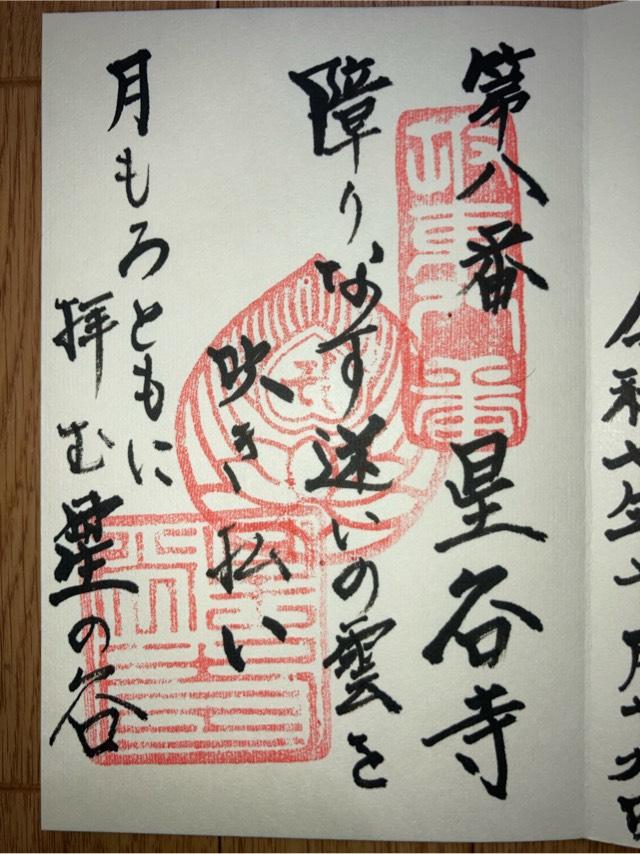 令和七年十月十
第八番 星谷寺
坂東八番
障りなす迷いの雲を
吹き払い
月もろともに
拝む星の谷